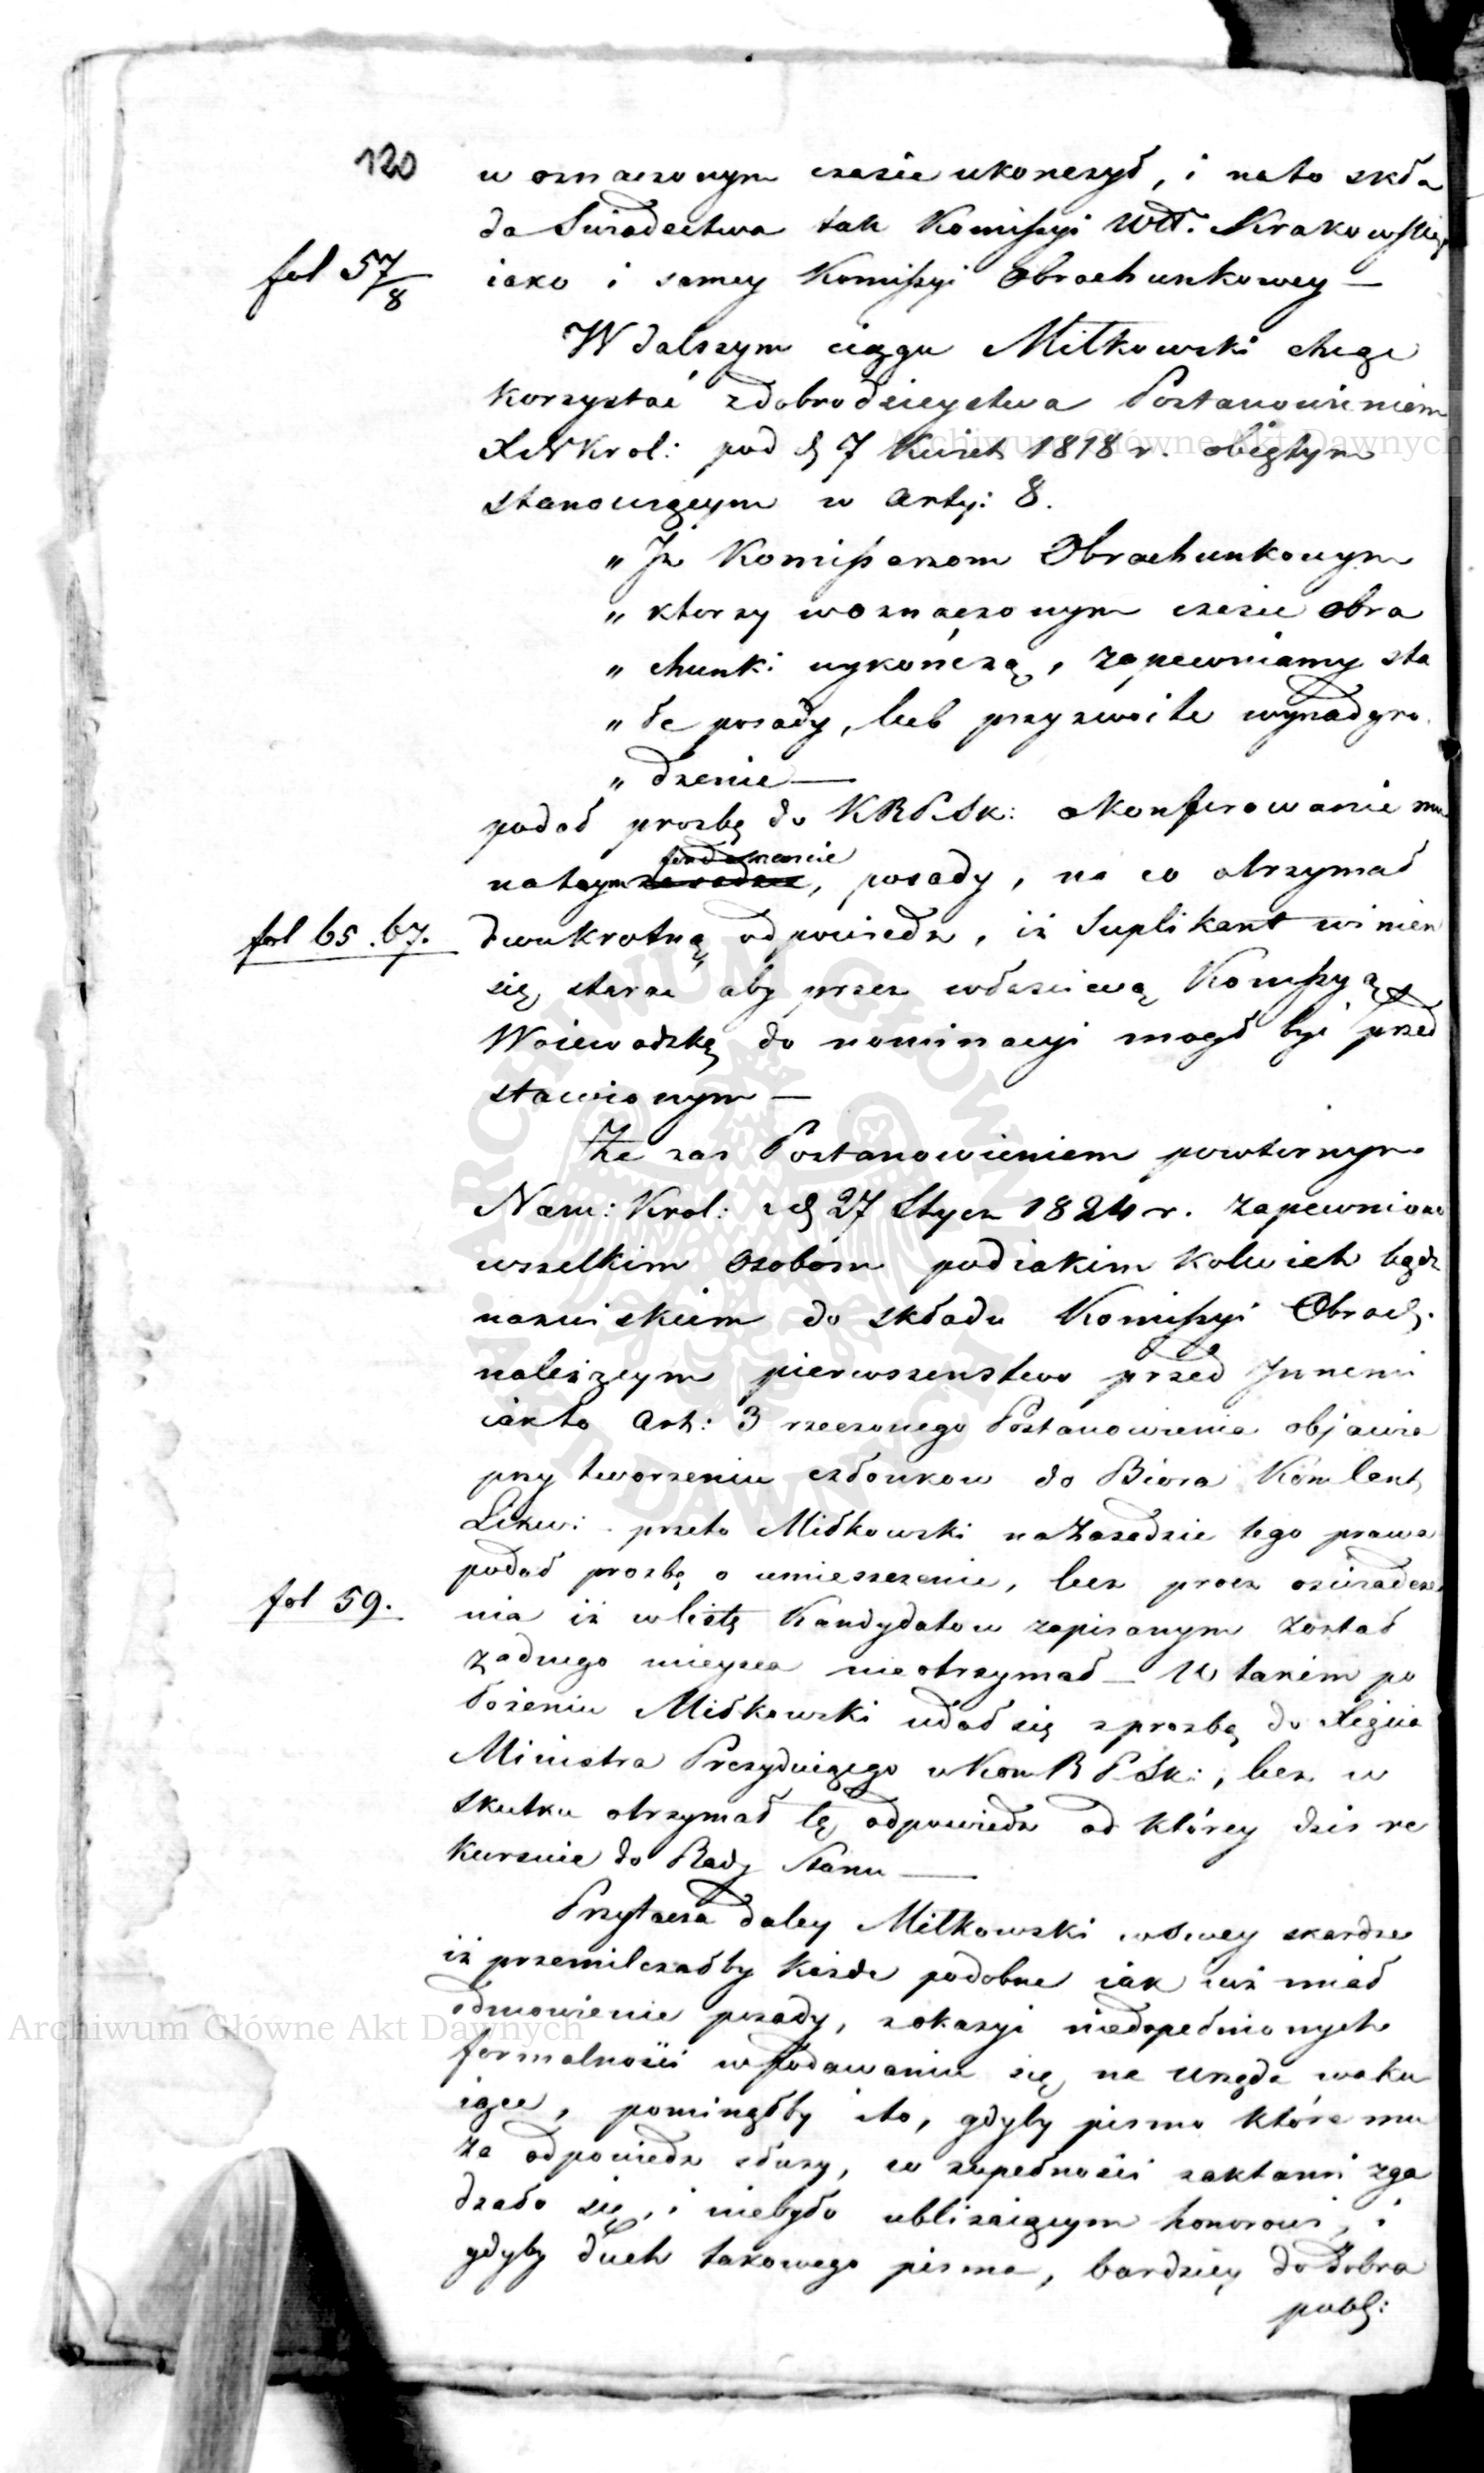 120
w oznaczonym czasie ukonczył, i na to skła
da Swiadectwa tak Kommissyi Wdt. Krakowskiey
fol 57/8
iako i samey Komissyi Obrachunkowey —
W dalszym ciągu Miłkowski chcąc
korzystać z dobrodzieystwa Postanowieniem
XNKrol: pod d 7 Kwiet 1818 r. obiętym
stanowiącym w Arty: 8.
„ Iż Komissarzom Obrachunkowym
„ ktorzy w oznaczonym czasie obra
„ chunki wykończą, zapewniamy sta
„ łe posady, lub przyzwoite wynadgro
„ dzenie —
podał prozbę do KRPSk: o konferowanie mu
na tym fundamencie, posady, na co otrzymał
fol 65. 67.
dwukrotną odpowiedz, iż Suplikant winien
się starać aby przez własciwą Komissyą
Woiewodzką do nominacyi mogł być przed
stawionym —
Że zas Postanowieniem powtornym
Nam: Krol: z d 27 Stycz 1824 r. zapewniono
wszelkim osobom pod iakim kolwiek bądz
nazwiskiem do składu Komissyi Obrach.
należącym pierwszenstwo przed Innemi
iak to Art: 3 rzeczonego Postanowienia objawia
przy tworzeniu członkow do Biora Kom Cent
Likwi: przeto Miłkowski na zasadzie tego prawa
podał prozbę o umieszczenie, lecz procz oswiadcze
fol 59.
nia iż w listę Kandydatow zapisanym został
żadnego mieysca nieotrzymał — W takim po
łożeniu Miłkowski udał się z prozbą do Xięcia
Ministra Prezyduiącego w Kom R P Sk:, lecz w
skutku otrzymał tę odpowiedz od którey dzis re
kursuie do Rady Stanu —
Przytacza daley Miłkowski w swey skardze
iż przemilczałby każde podobne iak iuż miał
odmowienie posady, z okazyi niedopełnionych
formalności w podawaniu się na Urzęda waku
iące, pominąłby i to, gdyby pismo które mu
za odpowiedz służy, w zupełności z aktami zga
dzało się, i niebyło ubliżaiącym honorowi, i
gdyby duch takowego pisma, bardziey do dobra
publ:
Archiwum Główne Akt Dawnych
Archiwum Główne Akt Dawnych
ARCHIWUM GŁÓWNE AKT DAWNYCH